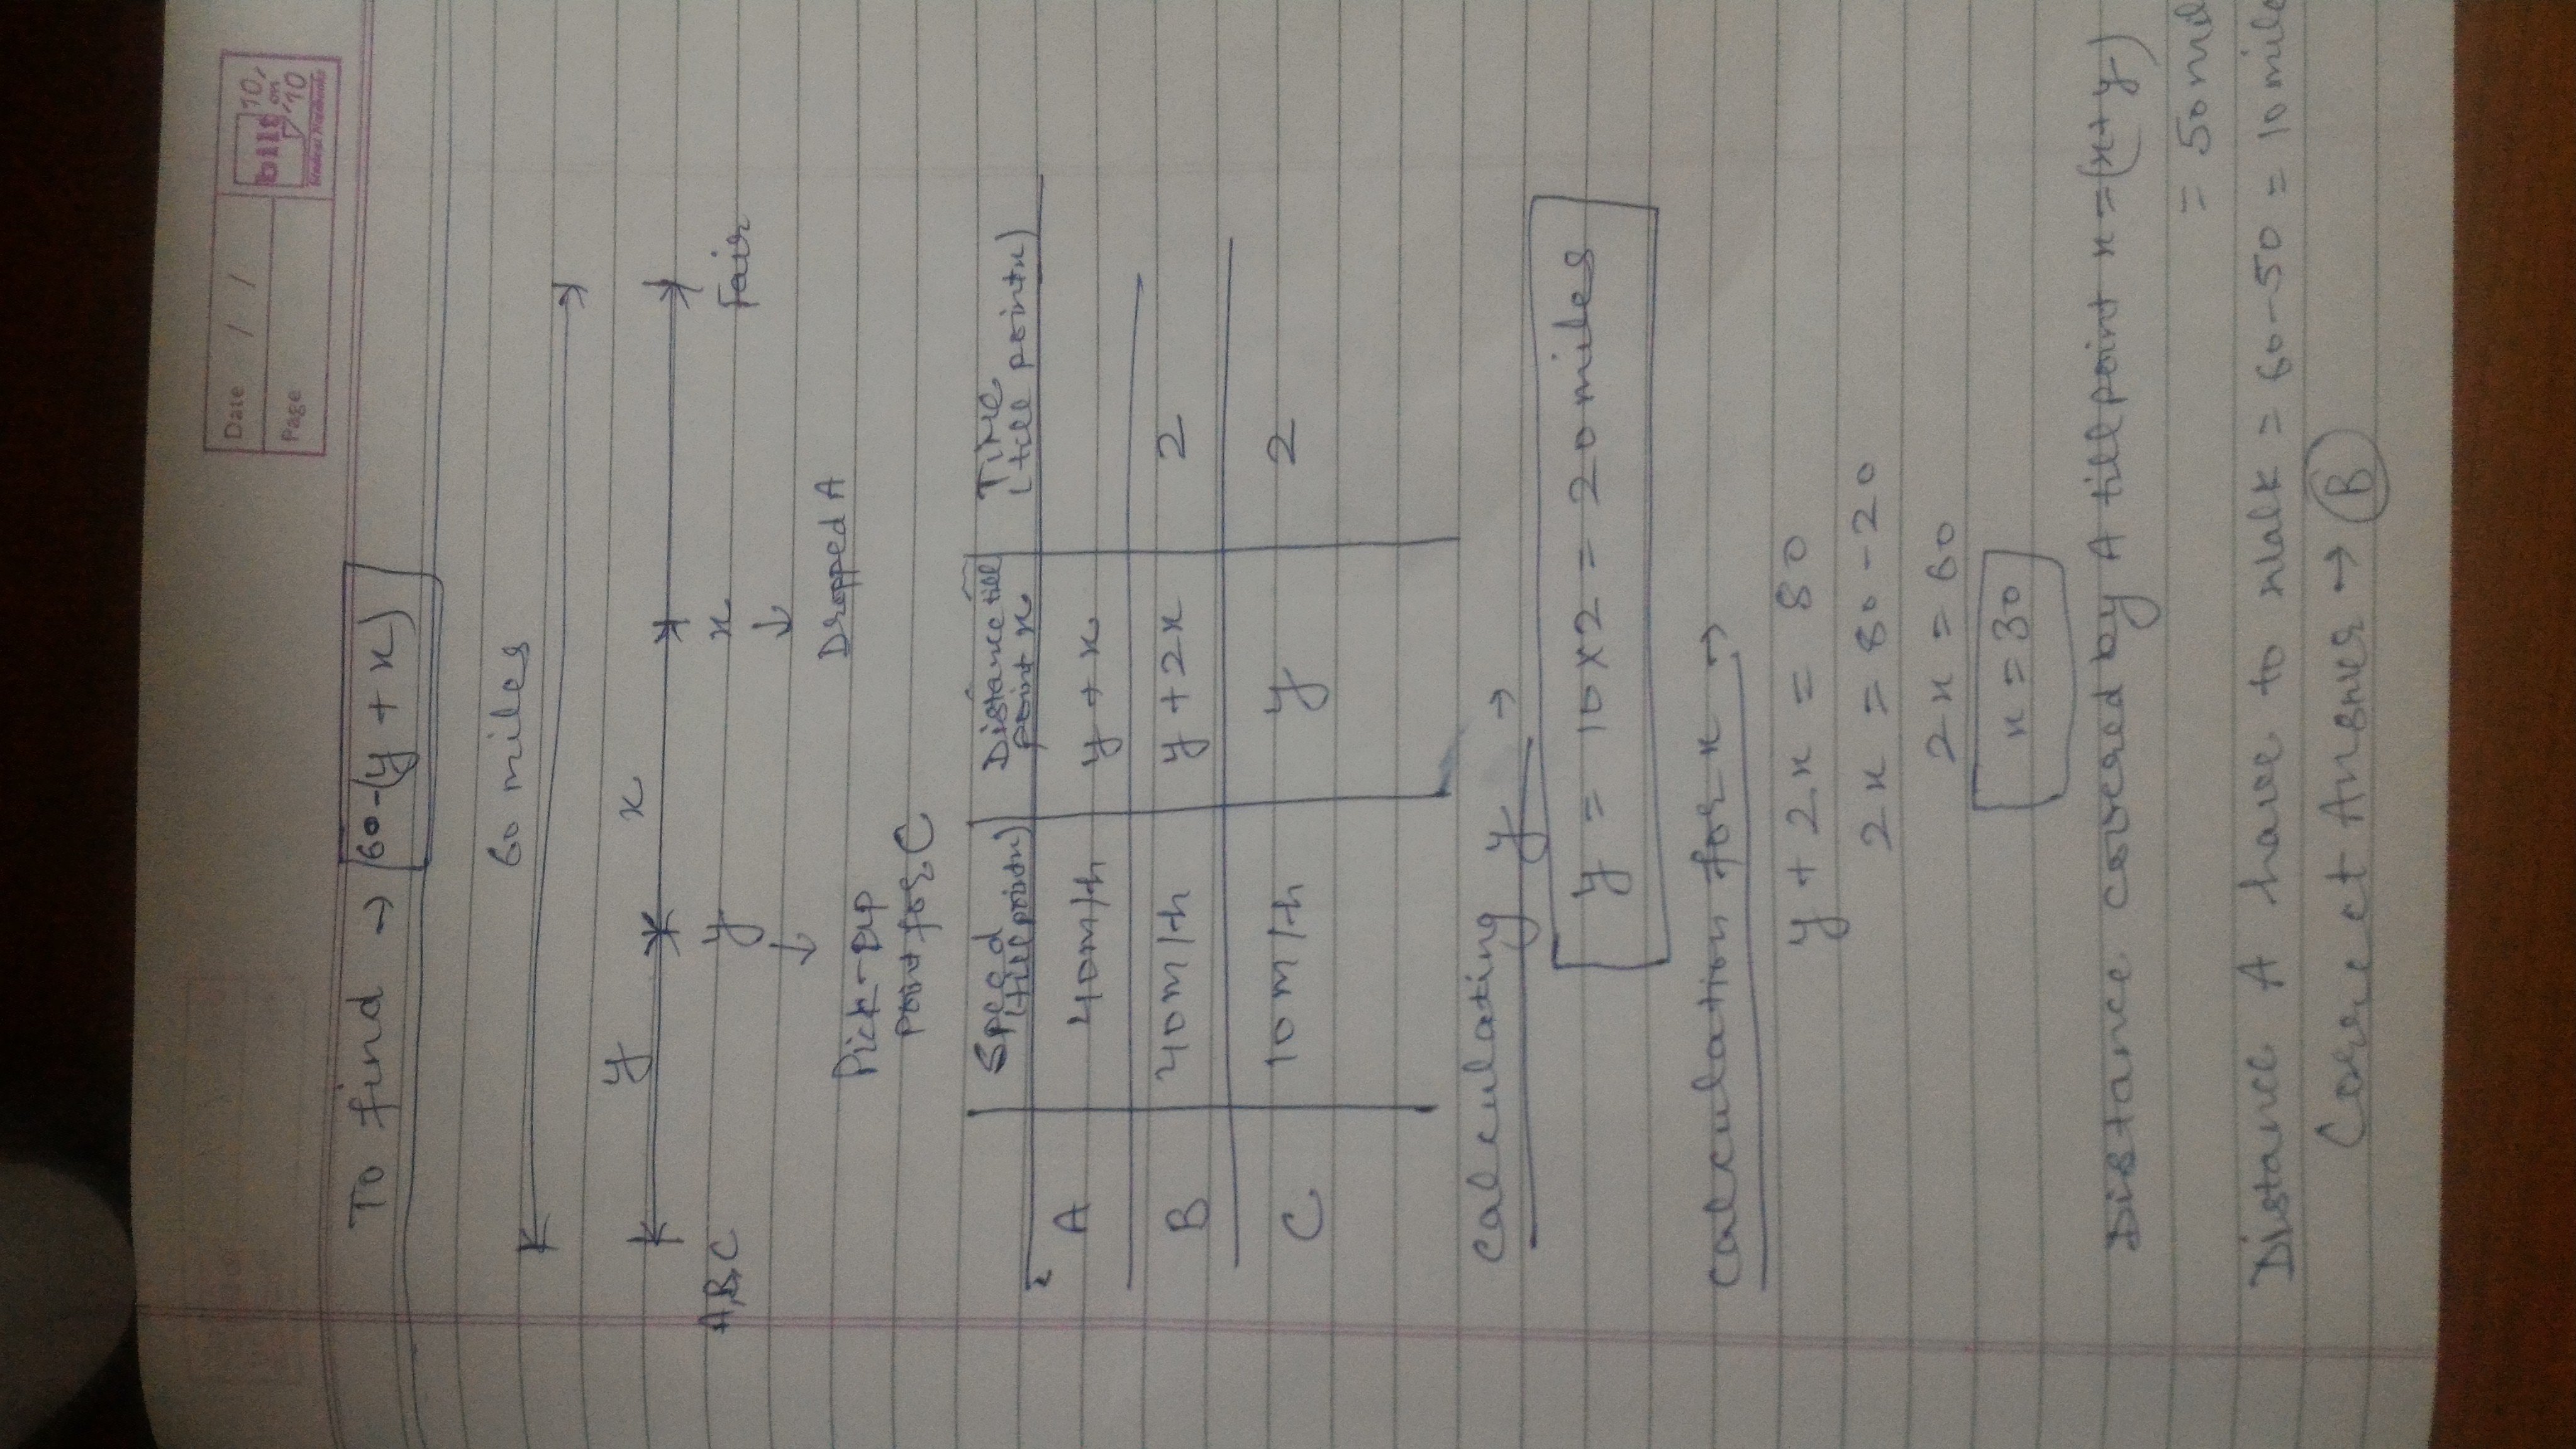 Date / /
Page
bilt 10,
on
10
To find → 60-(y + x)
60 miles
y x
A,B,C y x Fair
↓ ↓
Pick-up Dropped A
point for C
Speed Distance till Time
(till point x) point x (till point x)
A 40m/h y + x
B 40m/h y + 2x 2
C 10m/h y 2
Calculating y →
y = 10 x 2 = 20 miles
Calculation for x →
y + 2x = 80
2x = 80 - 20
2x = 60
x = 30
Distance covered by A till point x = (x+y)
= 50 mil
Distance A have to walk = 60-50 = 10 mile
Correct Answer → B